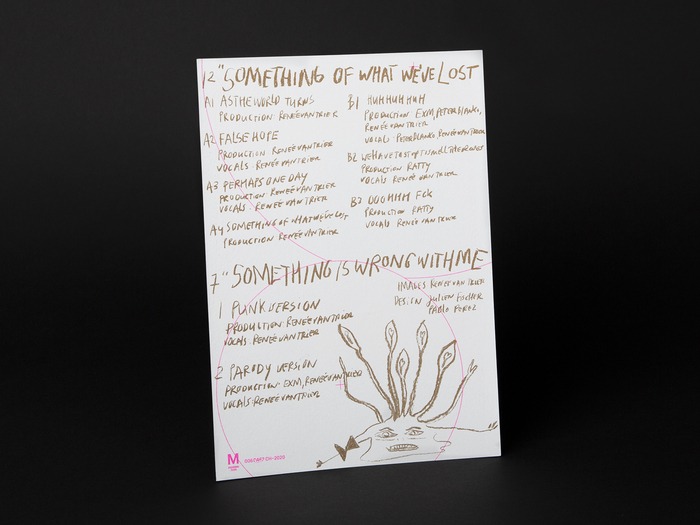 12" SOMETHING OF WHAT WE'VE LOST
A1 AS THE WORLD TURNS
PRODUCTION: RENÉE VAN TRIER
A2 FALSE HOPE
PRODUCTION RENÉE VAN TRIER
VOCALS RENÉE VAN TRIER
A3 PERHAPS ONE DAY
PRODUCTION: RENÉE VAN TRIER
VOCALS RENÉE VAN TRIER
A4 SOMETHING OF WHAT WE'VE LOST
PRODUCTION RENÉE VAN TRIER
B1 HUHHUHHUH
PRODUCTION EXM, PETER BLANKO,
RENÉE VAN TRIER
VOCALS PETER BLANKO, RENÉE VAN TRIER
B2 WE HAVE TO STOP TO SMELL THE
PRODUCTION RATTY
VOCALS RENÉE VAN TRIER
B3 OOOHHH Fck
PRODUCTION RATTY
VOCALS RENÉE VAN TRIER
7" SOMETHING IS WRONG WITH ME
IMAGES RENÉE VAN TRIER
DESIGN Julien
PABLO PEREZ
1 PUNK VERSION
PRODUCTION: RENÉE VAN TRIER
VOCALS: RENÉE VAN TRIER
2 PARODY VERSION
PRODUCTION: EXM, RENÉE VAN TRIER
VOCALS: RENÉE VAN TRIER
M